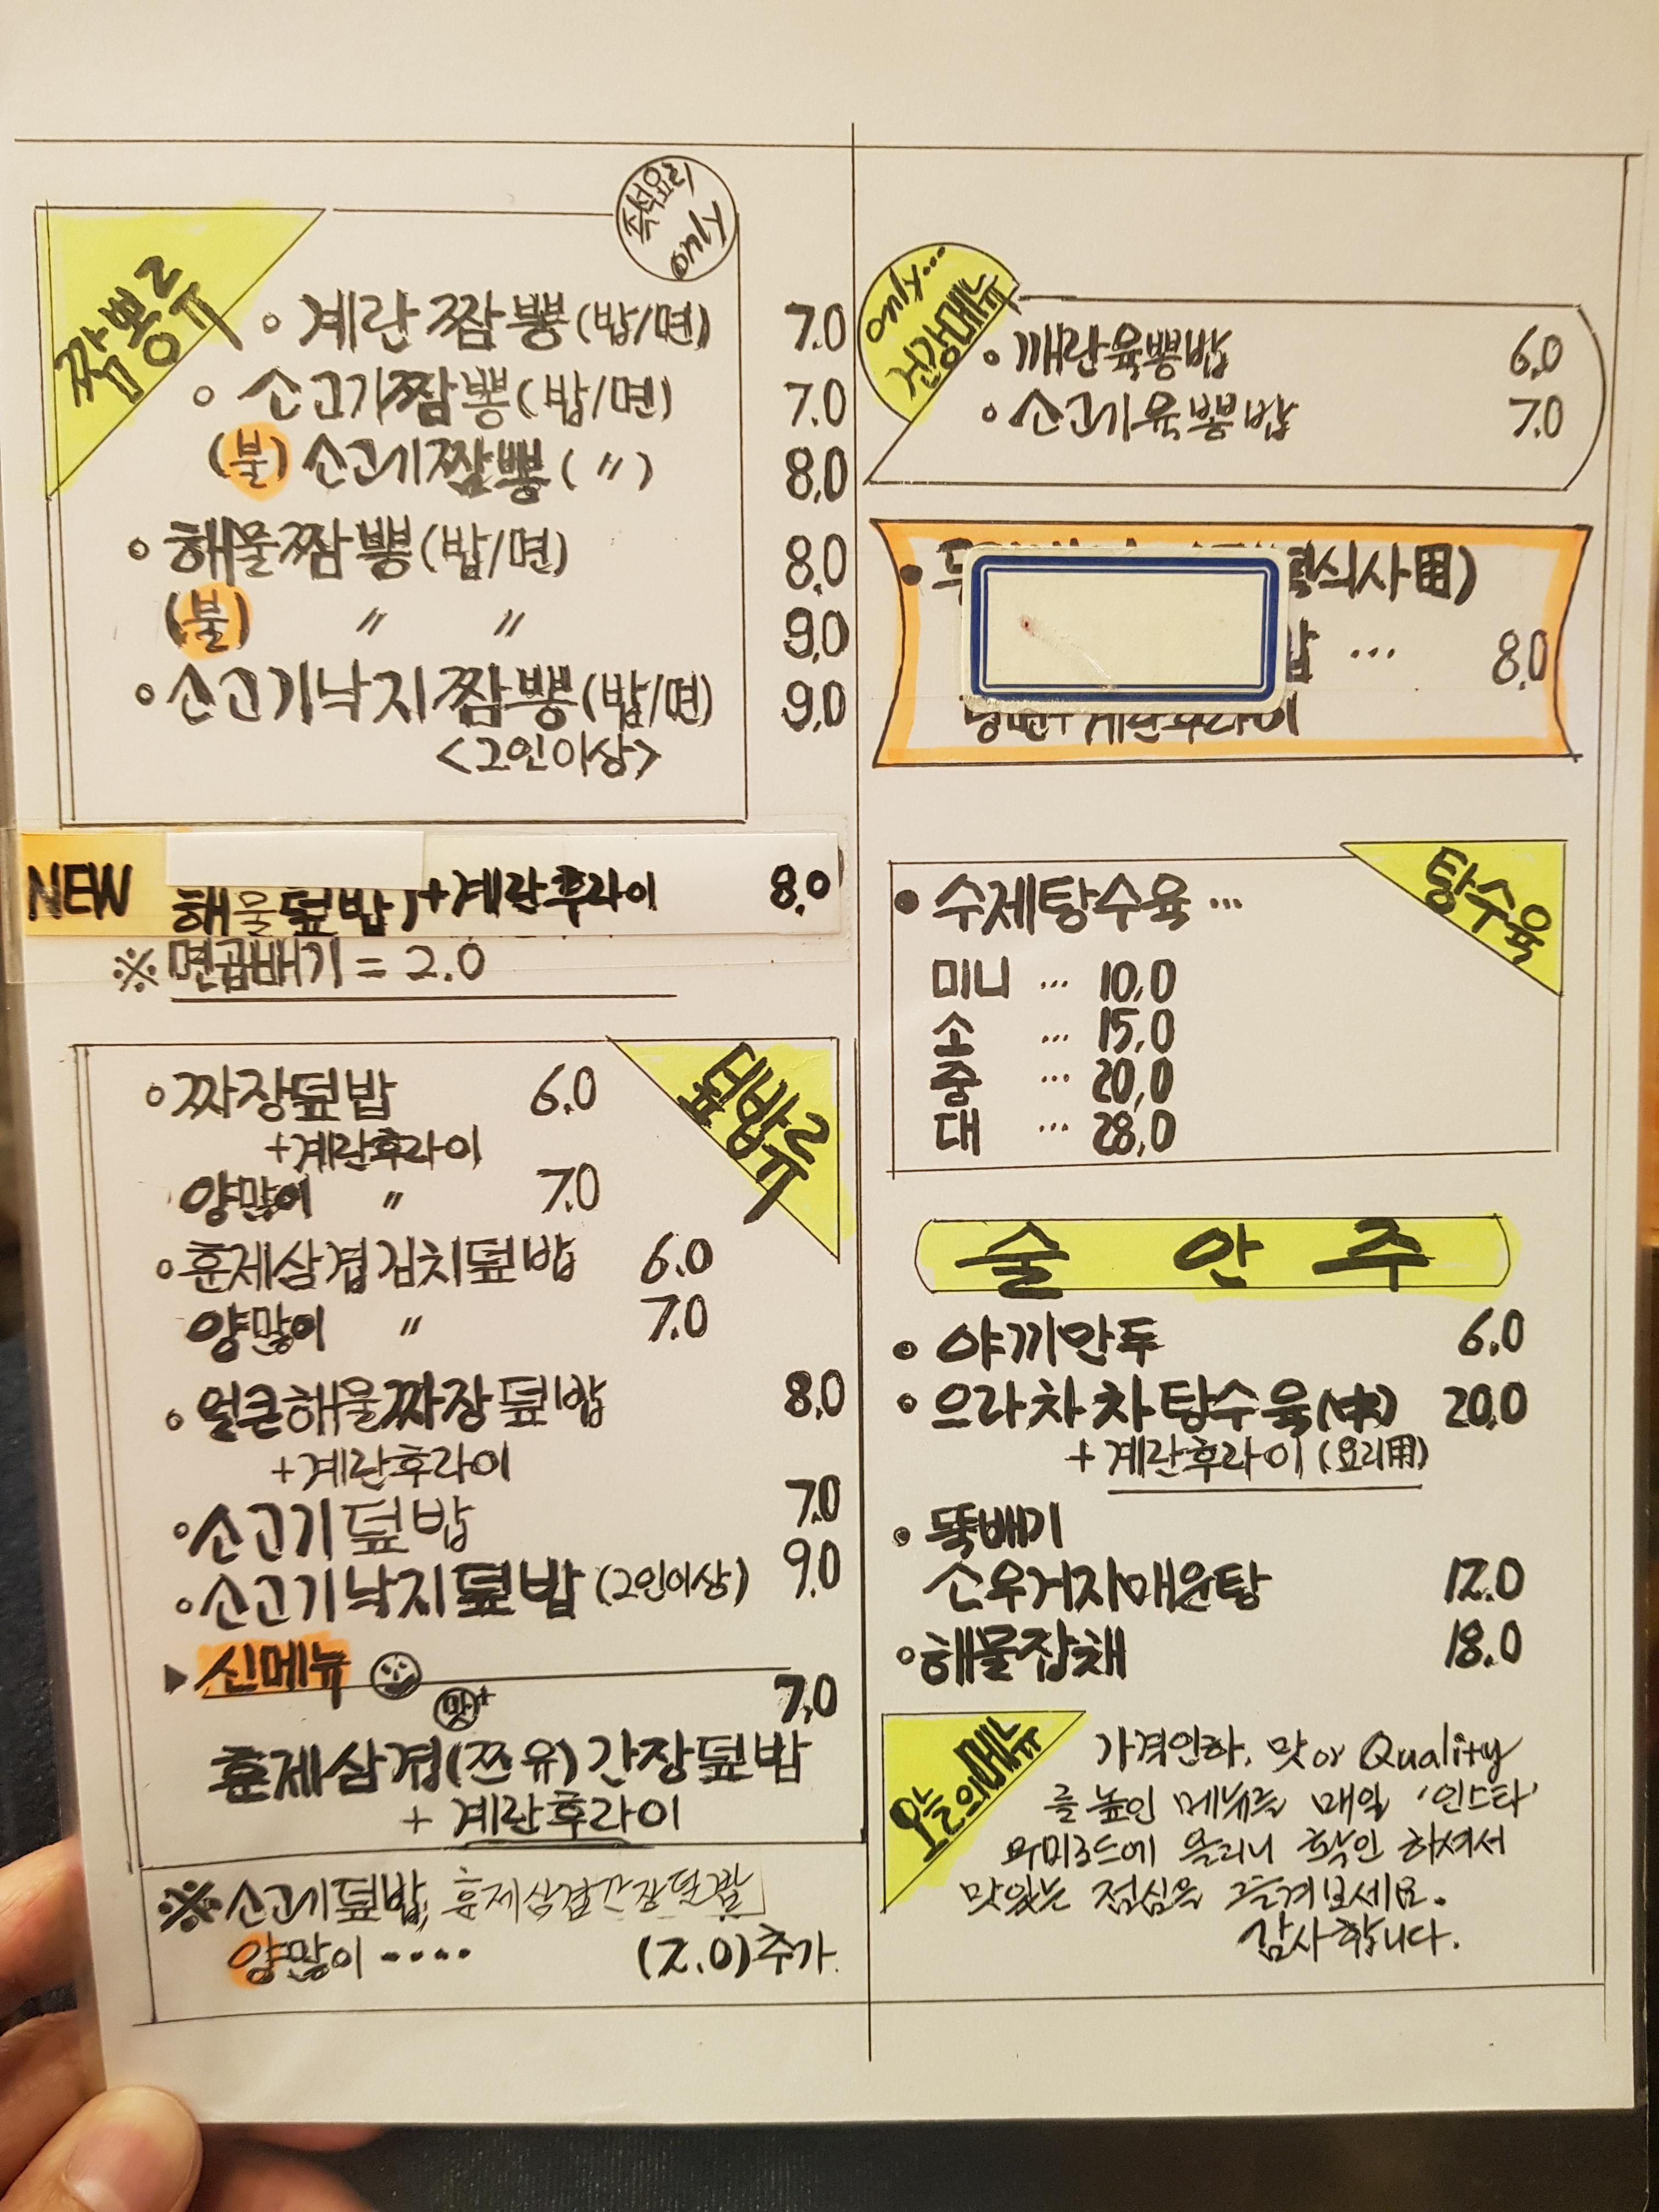 짬뽕류
즉석요리
only
• 계란짬뽕(밥/면) 7.0
• 소고기짬뽕(밥/면) 7.0
(불) 소고기짬뽕( 〃 ) 8.0
• 해물짬뽕(밥/면) 8.0
(불) 〃 〃 9.0
• 소고기낙지짬뽕(밥/면) 9.0
<2인이상>
NEW 해물덮밥+계란후라이 8.0
※ 면곱배기 = 2.0
덮밥류
• 짜장덮밥 6.0
+계란후라이
양많이 〃 7.0
• 훈제삼겹김치덮밥 6.0
양많이 〃 7.0
• 얼큰해물짜장덮밥 8.0
+계란후라이
• 소고기덮밥 7.0
• 소고기낙지덮밥 (2인이상) 9.0
▶ 신메뉴
맛+ 7.0
훈제삼겹(쯔유)간장덮밥
+ 계란후라이
※ 소고기덮밥, 훈제삼겹간장덮밥
양많이 ···· (2.0)추가
only...
건강메뉴
• 깨란육뽕밥 6.0
• 소고기육뽕밥 7.0
식사用)
... 8.0
계란후라이
탕수육
• 수제탕수육 ...
미니 ... 10.0
소 ... 15.0
중 ... 20.0
대 ... 28.0
술 안 주
• 야끼만두 6.0
• 으라차차탕수육(中) 20.0
+ 계란후라이 (요리用)
• 뚝배기
소우거지매운탕 12.0
• 해물잡채 18.0
오늘의메뉴
가격인하, 맛or Quality
를 높인 메뉴를 매일 '인스타'
와미3드에 올리니 확인 하셔서
맛있는 점심을 즐겨보세요.
감사합니다.